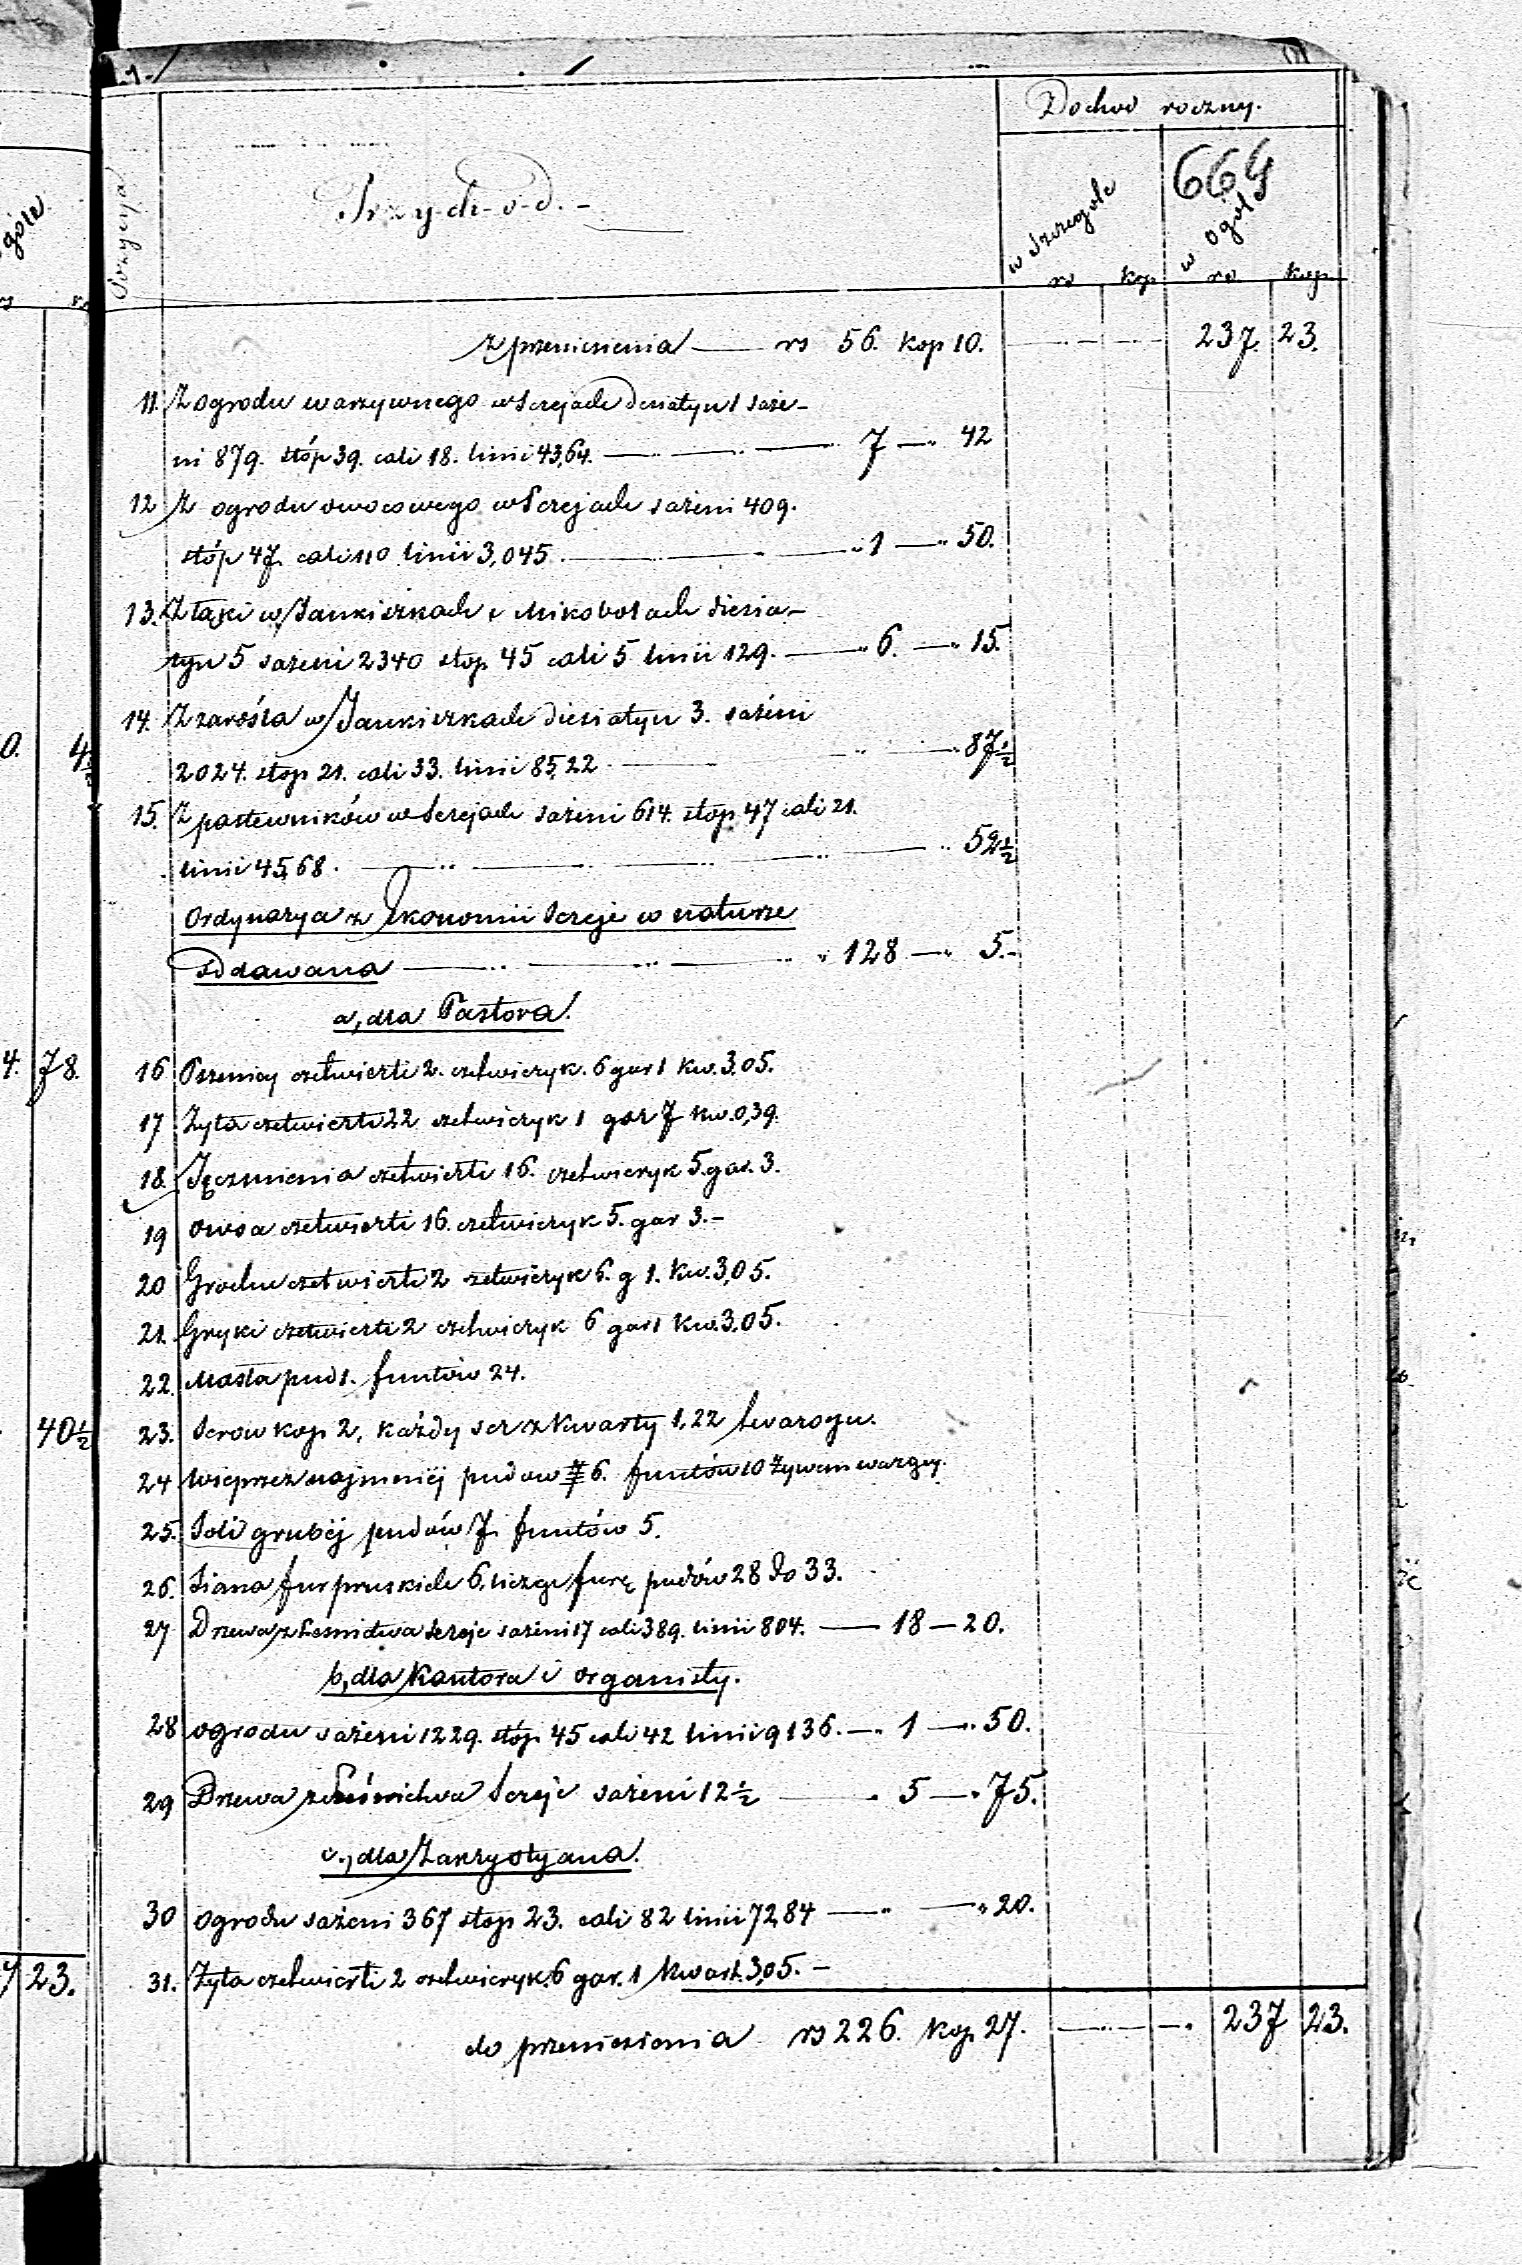 Dochod roczny.
664
Pozycya
Przy-ch-o-d.-
w Szczegole
w Ogole
rs kop rs kop
z przeniesienia — rs 56. kop 10. 237. 23.
11. Z ogrodu warzywnego w Serejach desiatyn 1 saże-
ni 879. stóp 39. cali 18. linii 43,64. — 7 — 42
12 Z ogrodu owocowego w Serejach sażeni 409.
stóp 47. cali 110 linii 3,045 — 1 — 50.
13. Z łąki w Jankiszkach i Mikobolach diesia-
tyn 5 sażeni 2340 stop 45 cali 5 linii 129. — 6. — 15.
14. Z zarośla w Jankiszkach diesiatyn 3. sażeni
2024. stop 21. cali 33. linii 85,22 — 87 1/2
15. Z pastewników w Serejach sażeni 614. stop 47 cali 21.
linii 45,68. — 52 1/2
Ordynarya z Ekonomii Sereje w naturze
oddawana — 128 — 5.-
a, dla Pastora.
16 Pszenicy czetwierti 2. czetwieryk. 6 gar 1 kw. 3,05.
17 Żyta czetwierti 22 czetwieryk 1 gar 7 kw. 0,39.
18. Jęczmienia czetwierti 16. czetwieryk 5. gar. 3.
19 Owsa czetwierti 16. czetwieryk 5. gar 3.-
20 Grochu czetwierti 2 czetwieryk 6. g 1. kw. 3,05.
21. Gryki czetwierti 2 czetwieryk 6 gar 1 kw. 3,05.
22. Masła pud 1. funtów 24.
23. Serow kop 2, każdy ser z kwarty 1,22 twarogu.
24 Wieprz najmniéj pudow 6. funtów 10 żywcem
25. Soli grubéj pudów 7. funtów 5.
26. Siana fur pruskich 6, licząc furę pudów 28 do 33.
27 Drzewa z Leśnictwa Sereje sażeni 17 cali 389. linii 804. — 18 — 20.
b, dla Kantora i organisty.
28 ogrodu sażeni 1229. stóp 45 cali 42 linii 9136. — 1 — 50.
29 Drzewa z Leśnictwa Sereje sażeni 12 1/2 — 5 — 75.
c., dla Zakrystyana.
30 Ogrodu sażeni 367 stop 23. cali 82 linii 72,84 — 20.
31. Żyta czetwierti 2 czetwieryk. 6 gar. 1 kwart. 3,05. -
do przeniesienia rs 226. kop 27. 237 23.
4 1/2
4. 78.
40 1/2
7 23.